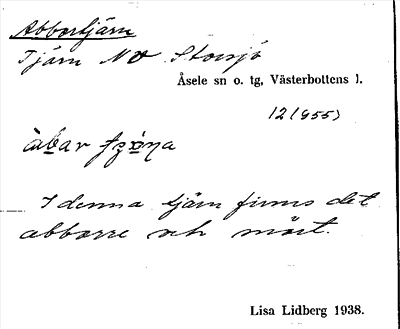 Abbortjärn
Tjärn NO Storsjö
Åsele sn o. tg, Västerbottens l.
12(955)
I denna tjärn finns det
abborre och mört.
Lisa Lidberg 1938.